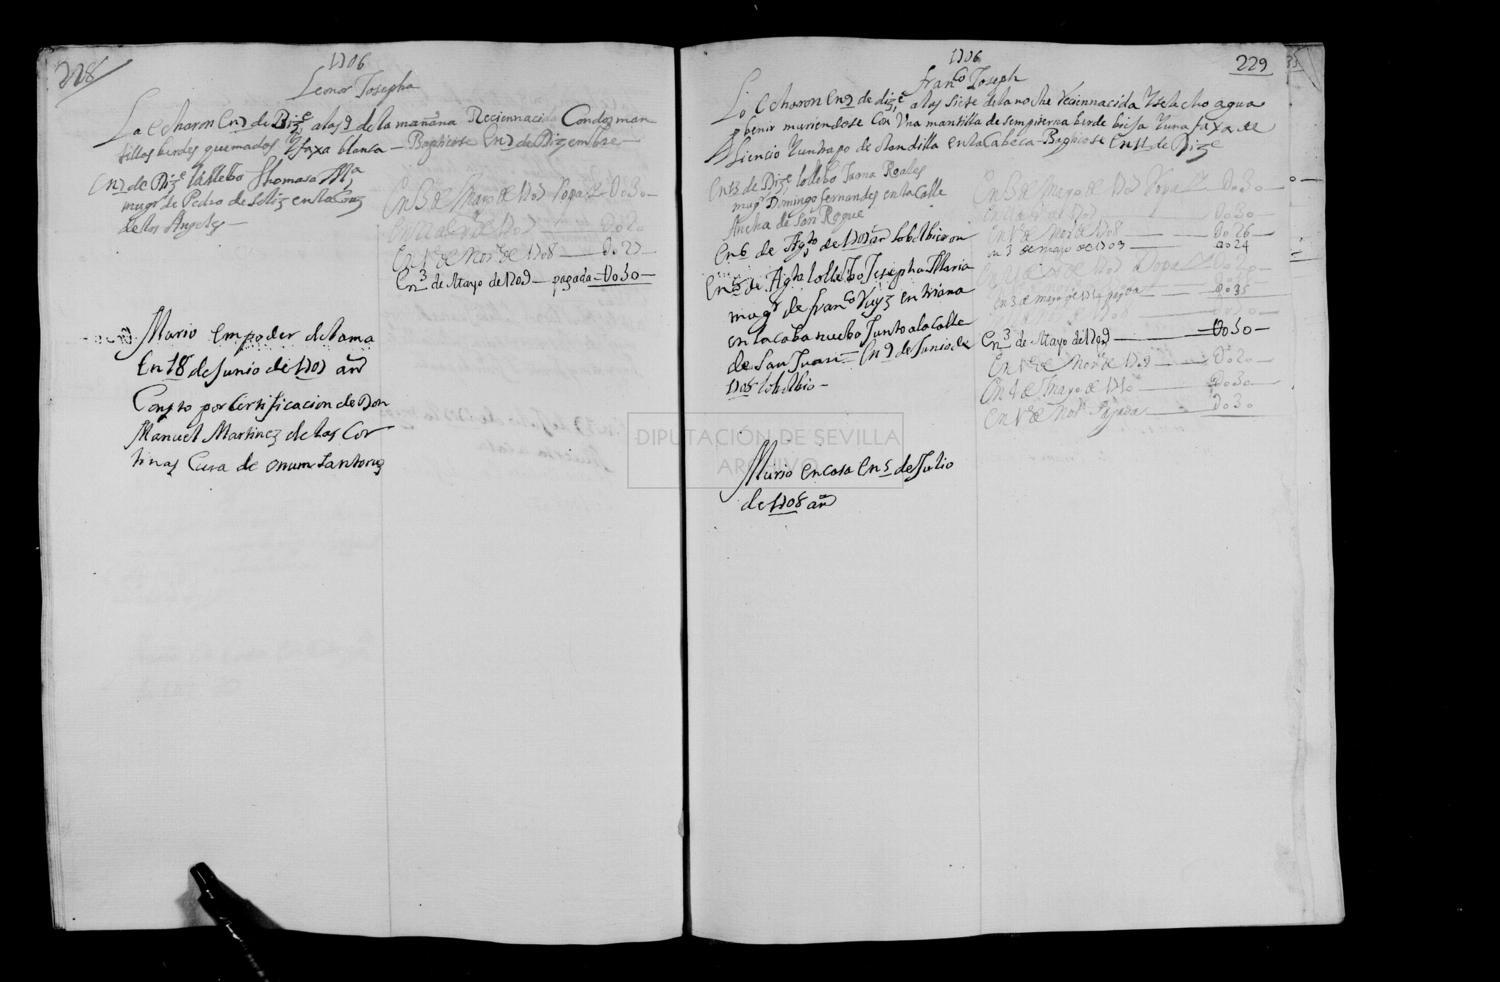 228
1706
Leonor Josepha
La echaron En 7 de Dize a las 9 de la mañana Reciennacida Con dos man
tillos berdes quemados Y faxa blanca — Baptisose En 7 de Dizembre —
En 7 de Dize la llebo Thomasa Ma
mugr de Pedro de en la Cruz
de los Angeles —
En 3 de Mayo de 1707 Popa — Do30 —
En de 1707 — Do20
En 1º de Nore de 1708 — Do27
En 3 de Mayo de 1709 — pagada — Do30 —
Murio em poder del ama
En 18 de Junio de 1707 as
Consto por Certificacion de Don
Manuel Martinez de las Cor
tinas Cura de Omnium Santorum
DIPUTACIÓN DE SEVILLA
ARCHIVO
1706
229
Franco Joseph
Lo echaron En 7 de dize a las siete de la noche reciennacida Y se la cho agua
p benir muriendose Con Una mantilla de sempiterna berde biesa Y una faxa de
Asiencio Y un trapo de Standilla en la Cabeca — Baptisose en 11 de Dize
En 13 de Dize lo llebo Juana Rosales
mugr Domingo fernandes en la Calle
Ancha de San Roque
En 6 de Agto de 1707 as lo bolbieron
En 8 de Agto lo llebo Josepha Maria
mugr de Franco Ruiz en triana
en la Caba nueba Junto a la Calle
de San Juan — En 9 de Junio de
1708 lo bolbio —
En 3 de Mayo de 1707 Popa — Do30 —
En de 1707 — Do30 —
En 1º de Nore de 1708 — Do26 —
en 3 de mayo de 1709 — Do24
en 3 de mayo de pagada — Do35
En 3 de Mayo de 1709 — Do30 —
En 1º de Nore de 1709 — Do20 —
En de Mayo de 1710 — Do30 —
En 1º de Nore Pagada — Do30 —
Murio en casa en 5 de Julio
de 1708 as